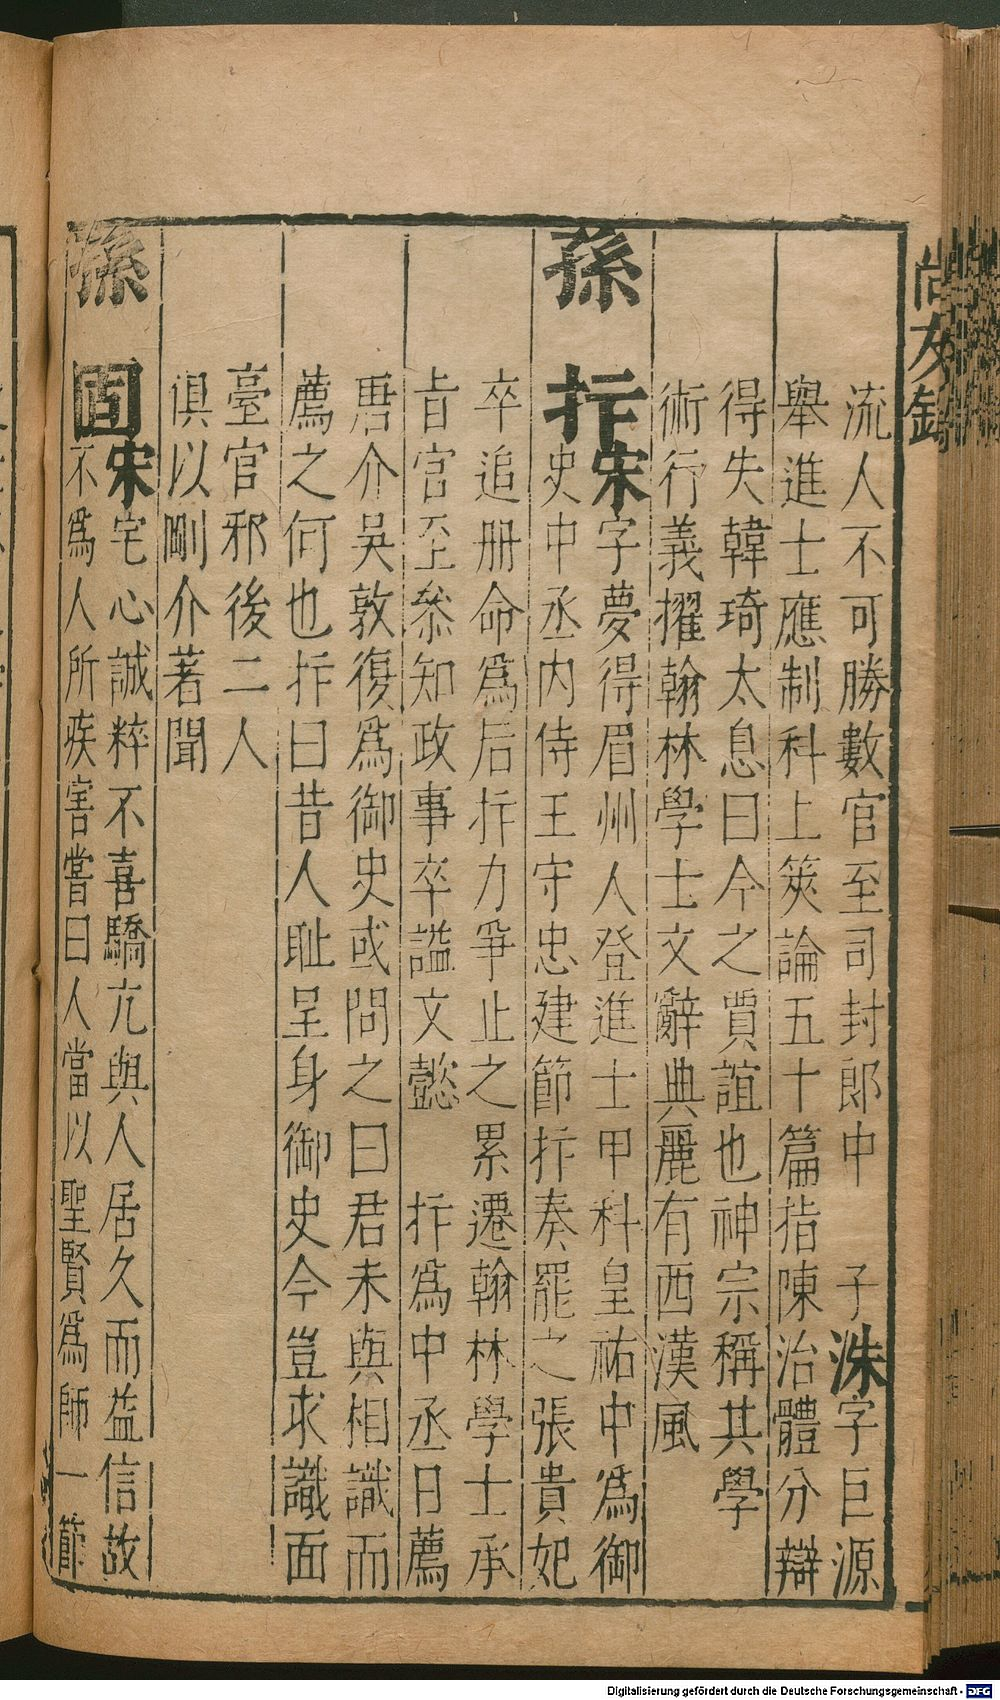 尚友錄
流人不可勝數官至司封郎中　子洙字巨源
舉進士應制科上筴論五十篇指陳治體分辯
得失韓琦太息曰今之賈誼也神宗稱其學
術行義擢翰林學士文辭典麗有西漢風
孫抃宋字夢得眉州人登進士甲科皇祐中爲御
史中丞內侍王守忠建節抃奏罷之張貴妃
卒追册命爲后抃力爭止之累遷翰林學士承
旨官至叅知政事卒謚文懿　抃爲中丞日薦
唐介吳敦復爲御史或問之曰君未與相識而
薦之何也抃曰昔人耻呈身御史今豈求識面
臺官邪後二人
俱以剛介著聞
孫固宋宅心誠粹不喜驕亢與人居久而益信故
不爲人所疾害嘗曰人當以聖賢爲師一節
Digitalisierung gefördert durch die Deutsche Forschungsgemeinschaft - DFG